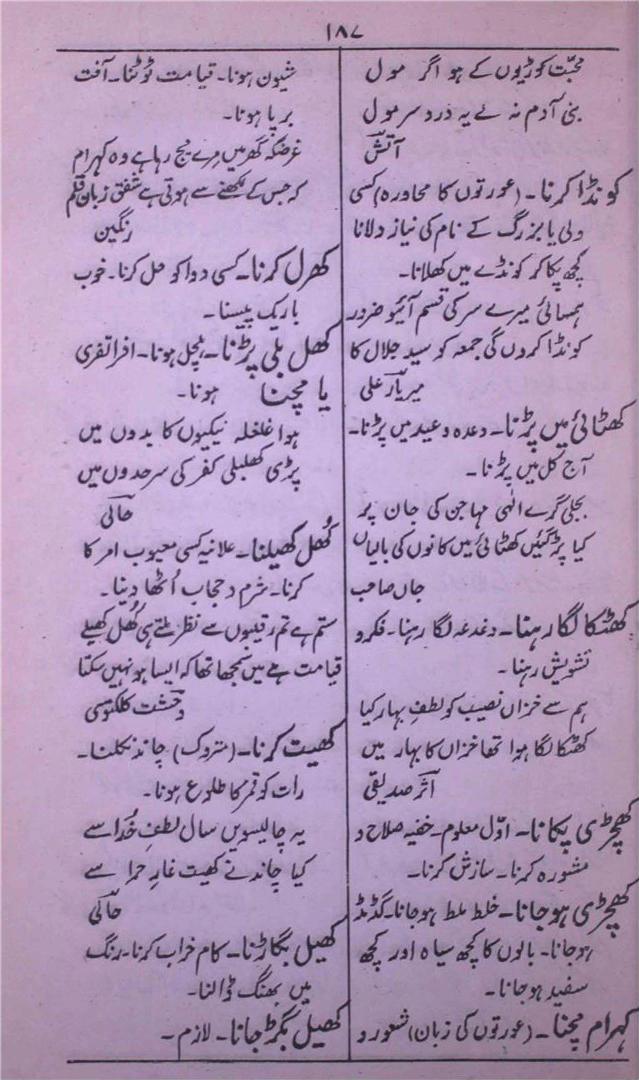 ۱۸۷
محبّت کوڑیوں کے ہو اگر مول
بنی آدم نہ لے یہ درد سر مول
آتشؔ
کونڈا کرنا۔ (عورتوں کا محاورہ) کسی
ولی یا بزرگ کے نام کی نیاز دلانا
کچھ پکا کر کونڈے میں کھلانا۔
ہمسائی میرے سر کی قسم آئیو ضرور
کونڈا کروں گی جمعہ کو سید جلال کا
میر یار علی
کھٹائی میں پڑنا۔ وعدہ وعید میں پڑنا۔
آج کل میں پڑنا۔
بجلی گرے الٰہی مہاجن کی جان پر
کیا پڑ گئیں کھٹائی میں کانوں کی بالیاں
جاں صاحب
کھٹکا لگا رہنا۔ دغدغہ لگا رہنا۔ فکر و
تشویش رہنا۔
ہم سے خزاں نصیب کو لطفِ بہار کیا
کھٹکا لگا ہوا تھا خزاں کا بہار میں
اثرؔ صدیقی
کھچڑی پکانا۔ اوّل معلوم۔ خفیہ صلاح و
مشورہ کرنا۔ سازش کرنا۔
کھچڑی ہوجانا۔ خلط ملط ہوجانا۔ گڈمڈ
ہوجانا۔ بالوں کا کچھ سیاہ اور کچھ
سفید ہوجانا۔
کہرام مچنا۔ (عورتوں کی زبان) شعور و
شیون ہونا۔ قیامت ٹوٹنا۔ آفت
برپا ہونا۔
غرضکہ گھر میں مرے مچ رہا ہے وہ کہرام
کہ جس کے لکھنے سے ہوتی ہے شفق زبان قلم
رنگین
کھرل کرنا۔ کسی دوا کو حل کرنا۔ خوب
باریک پیسنا۔
کھل بلی پڑنا۔ ہلچل ہونا۔ افراتفری
یا مچنا ہونا۔
ہوا غلغلہ نیکیوں کا بدوں میں
پڑی کھلبلی کفر کی سرحدوں میں
حالیؔ
کُھل کھیلنا۔ علانیہ کسی معیوب امر کا
کرنا۔ شرم و حجاب اُٹھا دینا۔
ستم ہے تم رقیبوں سے نظر ملتے ہی کُھل کھیلے
قیامت ہے میں سمجھا تھا کہ ایسا ہو نہیں سکتا
وحشت کلکتوی
کھیت کرنا۔ (متروک) چاند نکلنا۔
رات کو قمر کا طلوع ہونا۔
یہ چالیسویں سال لطفِ خُدا سے
کیا چاند نے کھیت غارِ حرا سے
حالیؔ
کھیل بگاڑنا۔ کام خراب کرنا۔ رنگ
میں بھنگ ڈالنا۔
کھیل بگڑ جانا۔ لازم۔